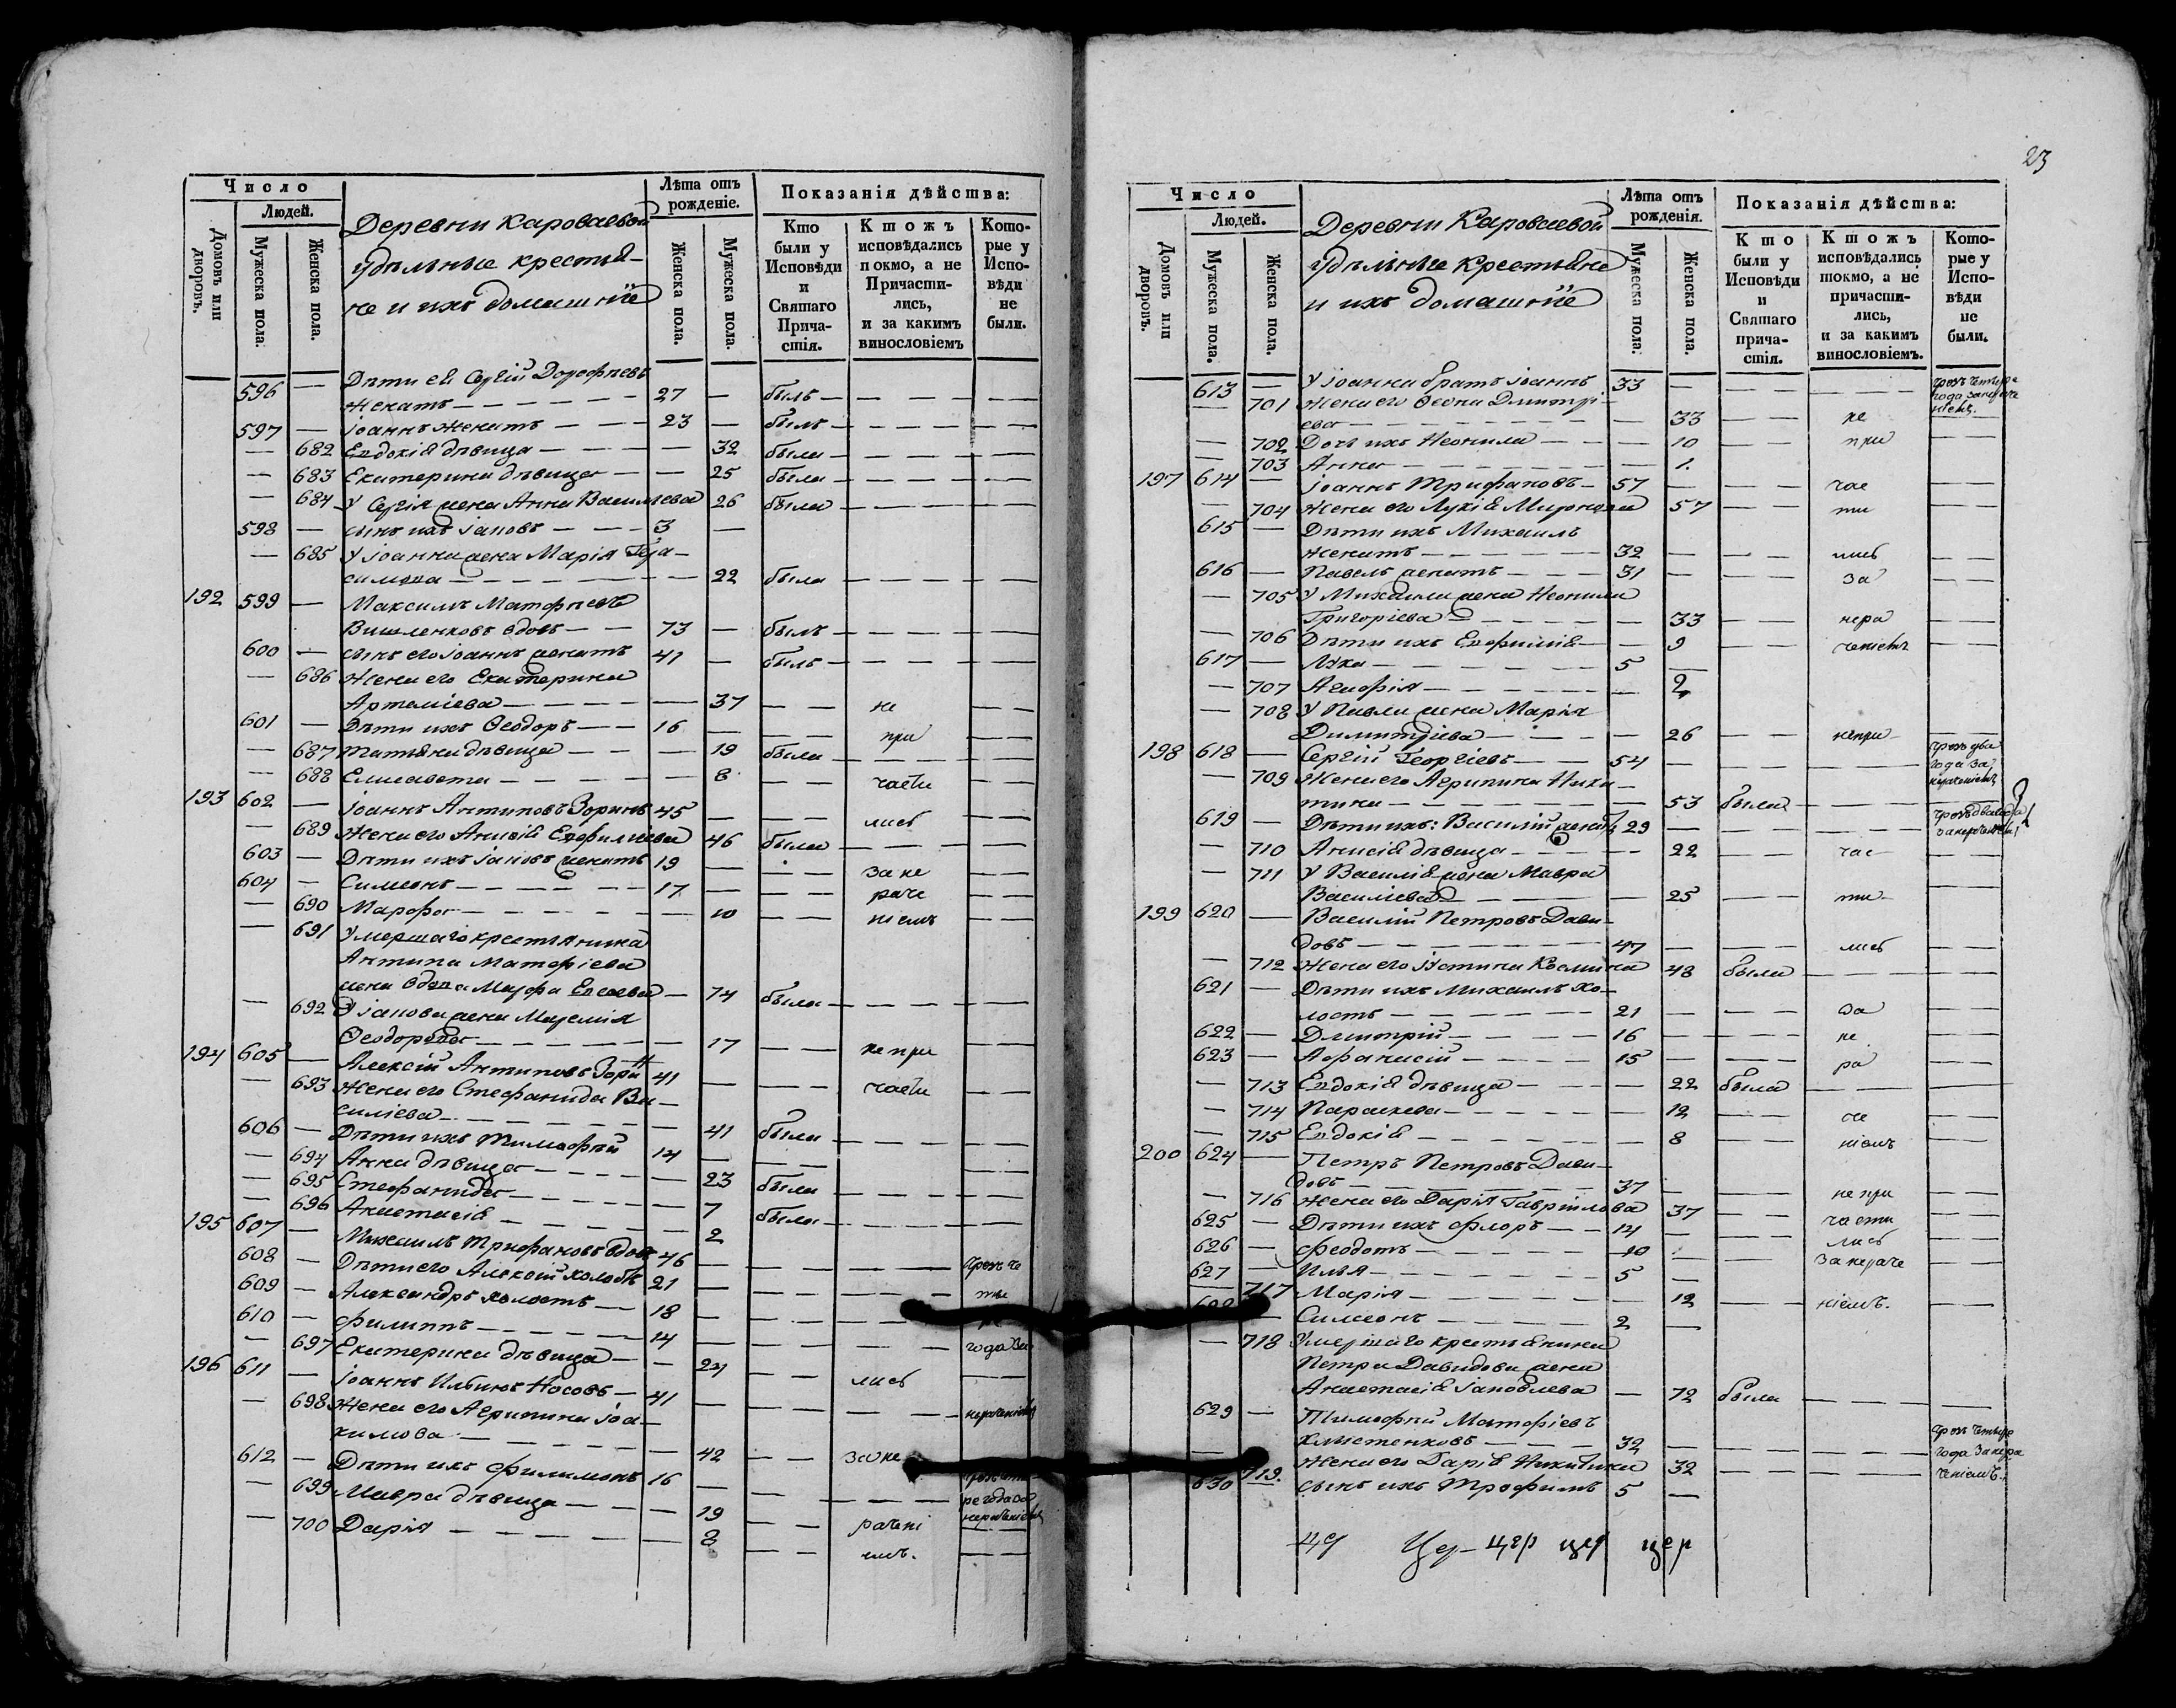 Число
Людей.
Домовъ или дворовъ.
Мужеска пола.
Женска пола.
Деревни Кароваевой
удѣльные крестья-
не и ихъ домашніе
Лѣта отъ рожденіе.
Женска пола.
Мужеска пола.
Показанія дѣйства:
Кто были у Исповѣди и Святаго Прича-стія.
Ктожъ исповѣдались покмо, а не Причасти-лись, и за какимъ винословіемъ
Кото-рые у Испо-вѣди не были.
596 — Дѣти ея Сергій Дорофѣевъ
женатъ — 27 — былъ —
597 — Іоаннъ женатъ — 23 — былъ —
— 682 Евдокія дѣвица — 32 была —
— 683 Екатерина дѣвица — 25 была —
— 684 У Сергія жена Анна Васильева 26 была —
598 — сынъ ихъ Іаковъ — 3 —
— 685 У Іоанна жена Марія Гера-
симова — 22 была —
192 599 — Максимъ Матфѣевъ
Вишленковъ вдовъ — 73 — былъ —
600 — сынъ его Іоаннъ женатъ 41 — былъ —
— 686 Жена его Екатерина
Артеміева — 37 — не —
601 — Дѣти ихъ Ѳеодоръ — 16 — при —
— 687 Татьяна дѣвица — 19 была —
— 688 Елисавета — 8 — части
193 602 — Іоаннъ Антиповъ Зоринъ 45 — лись —
— 689 Жена его Анисія Евфиміева 46 была —
603 — Дѣти ихъ Іаковъ женатъ 19 — за не —
604 — Симеонъ — 17 — раче —
— 690 Марфа — 10 — ніемъ —
— 691 Умершаго крестьянина
Антипа Матфіева
жена вдова Марфа Елсеева — 74 была —
— 692 У Іакова жена Маремія
Ѳеодорова — 17 — не при —
194 605 — Алексій Антиповъ Зоринъ 41 — части —
— 693 Жена его Стефанида Ва-
силіева — 41 была —
606 — Дѣти ихъ Тимофѣй 14 —
— 694 Анна дѣвица — 23 была —
— 695 Стефанида — 7 была —
— 696 Анастасія — 2
195 607 — Михаилъ Трифановъ вдовъ 46 — чрезъ че
608 — Дѣти его Алексій холостъ 21 — ты
609 — Александръ холостъ — 18 —
610 — Филиппъ — 14 — года за
— 697 Екатерина дѣвица — 24 — лись —
196 611 — Іоаннъ Ильинъ Носовъ — 41 — нераченіемъ
— 698 Жена его Агрипина Іоа-
кимова — 42 — за не
612 — Дѣти ихъ Филимонъ 16 —
— 699 Мавра дѣвица — 19 — рачені
ре года за нераченіемъ
— 700 Дарія — 8 — емъ.
23
Число
Людей.
Домовъ или дворовъ.
Мужеска пола.
Женска пола.
Деревни Кароваевой
удѣльные крестьяне
и ихъ домашніе
Лѣта отъ рожденія.
Мужеска пола.
Женска пола.
Показанія дѣйства:
Кто были у Исповѣди и Святаго прича-стія.
Ктожъ исповѣдались токмо, а не причасти-лись, и за какимъ винословіемъ.
Кото-рые у Испо-вѣди не были.
613 — У Іоанна братъ Іоаннъ 33 — чрезъ четыре года за нераченіемъ
— 701 Жена его Ѳекла Дмитрі-
ева — 33 — не —
— 702 Дочь ихъ Неонила — 10 — при —
— 703 Анна — 1.
197 614 — Іоаннъ Трифановъ — 57 — час —
— 704 Жена его Лукія Миронова 57 — ти —
615 — Дѣти ихъ Михаилъ
женатъ — 32 — лись —
616 — Павелъ женатъ — 31 — за —
— 705 У Михаила жена Неонила
Григоріева — 33 — нера —
— 706 Дѣти ихъ Евфимія — 9 — ченіемъ —
617 — Лука — 5 —
— 707 Агафія — 2
— 708 У Павла жена Марія
Димитріева — 26 — не при —
198 618 — Сергій Георгіевъ — 54 — чрезъ два года за нераченіемъ
— 709 Жена его Агрипина Ники-
тина — 53 была —
619 — Дѣти ихъ: Василій женатъ 29 — чрезъ два года за нераченіемъ
— 710 Анисія дѣвица — 22 — час —
— 711 У Василія жена Мавра
Васильева — 25 — ти —
199 620 — Василій Петровъ Дави-
довъ — 47 — лись —
— 712 Жена его Устина Козмина 48 была —
621 — Дѣти ихъ Михаилъ хо-
лостъ — 21 — за —
622 — Дмитрій — 16 — не —
623 — Афанасій — 15 — ра —
— 713 Евдокія дѣвица — 22 была —
— 714 Параскева — 12 — че —
— 715 Евдокія — 8 — ніемъ —
200 624 — Петръ Петровъ Дави-
довъ — 37 — не при —
— 716 Жена его Дарія Гавріилова 37 — части —
625 — Дѣти ихъ Флоръ — 14 — лись —
626 — Феодотъ — 10 — за нераче —
627 — Илья — 5 —
— 717 Марія — 12 — ніемъ. —
628 — Симеонъ — 2 —
— 718 Умершаго крестьянина
Петра Давидова жена
Анастасія Іаковлева — 72 была —
629 — Тимофѣй Матфіевъ
Хлыстенковъ — 32 — чрезъ четыре
— 719. Жена его Дарія Никитина 32 — года за нера
630 — сынъ ихъ Трофимъ 5 — ченіемъ.
цер Цер — цер цер цер